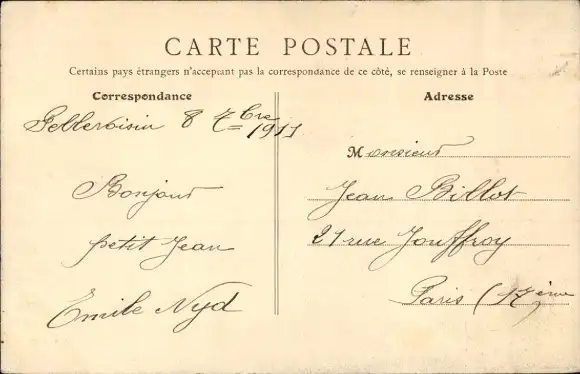 CARTE POSTALE
Certains pays étrangers n'acceptant pas la correspondance de ce côté, se renseigner à la Poste
Correspondance
Pellevoisin 8 7bre 1911
Bonjour
petit Jean
Emile Nyd
Adresse
Monsieur
Jean Billot
21 rue Jouffroy
Paris (17ème